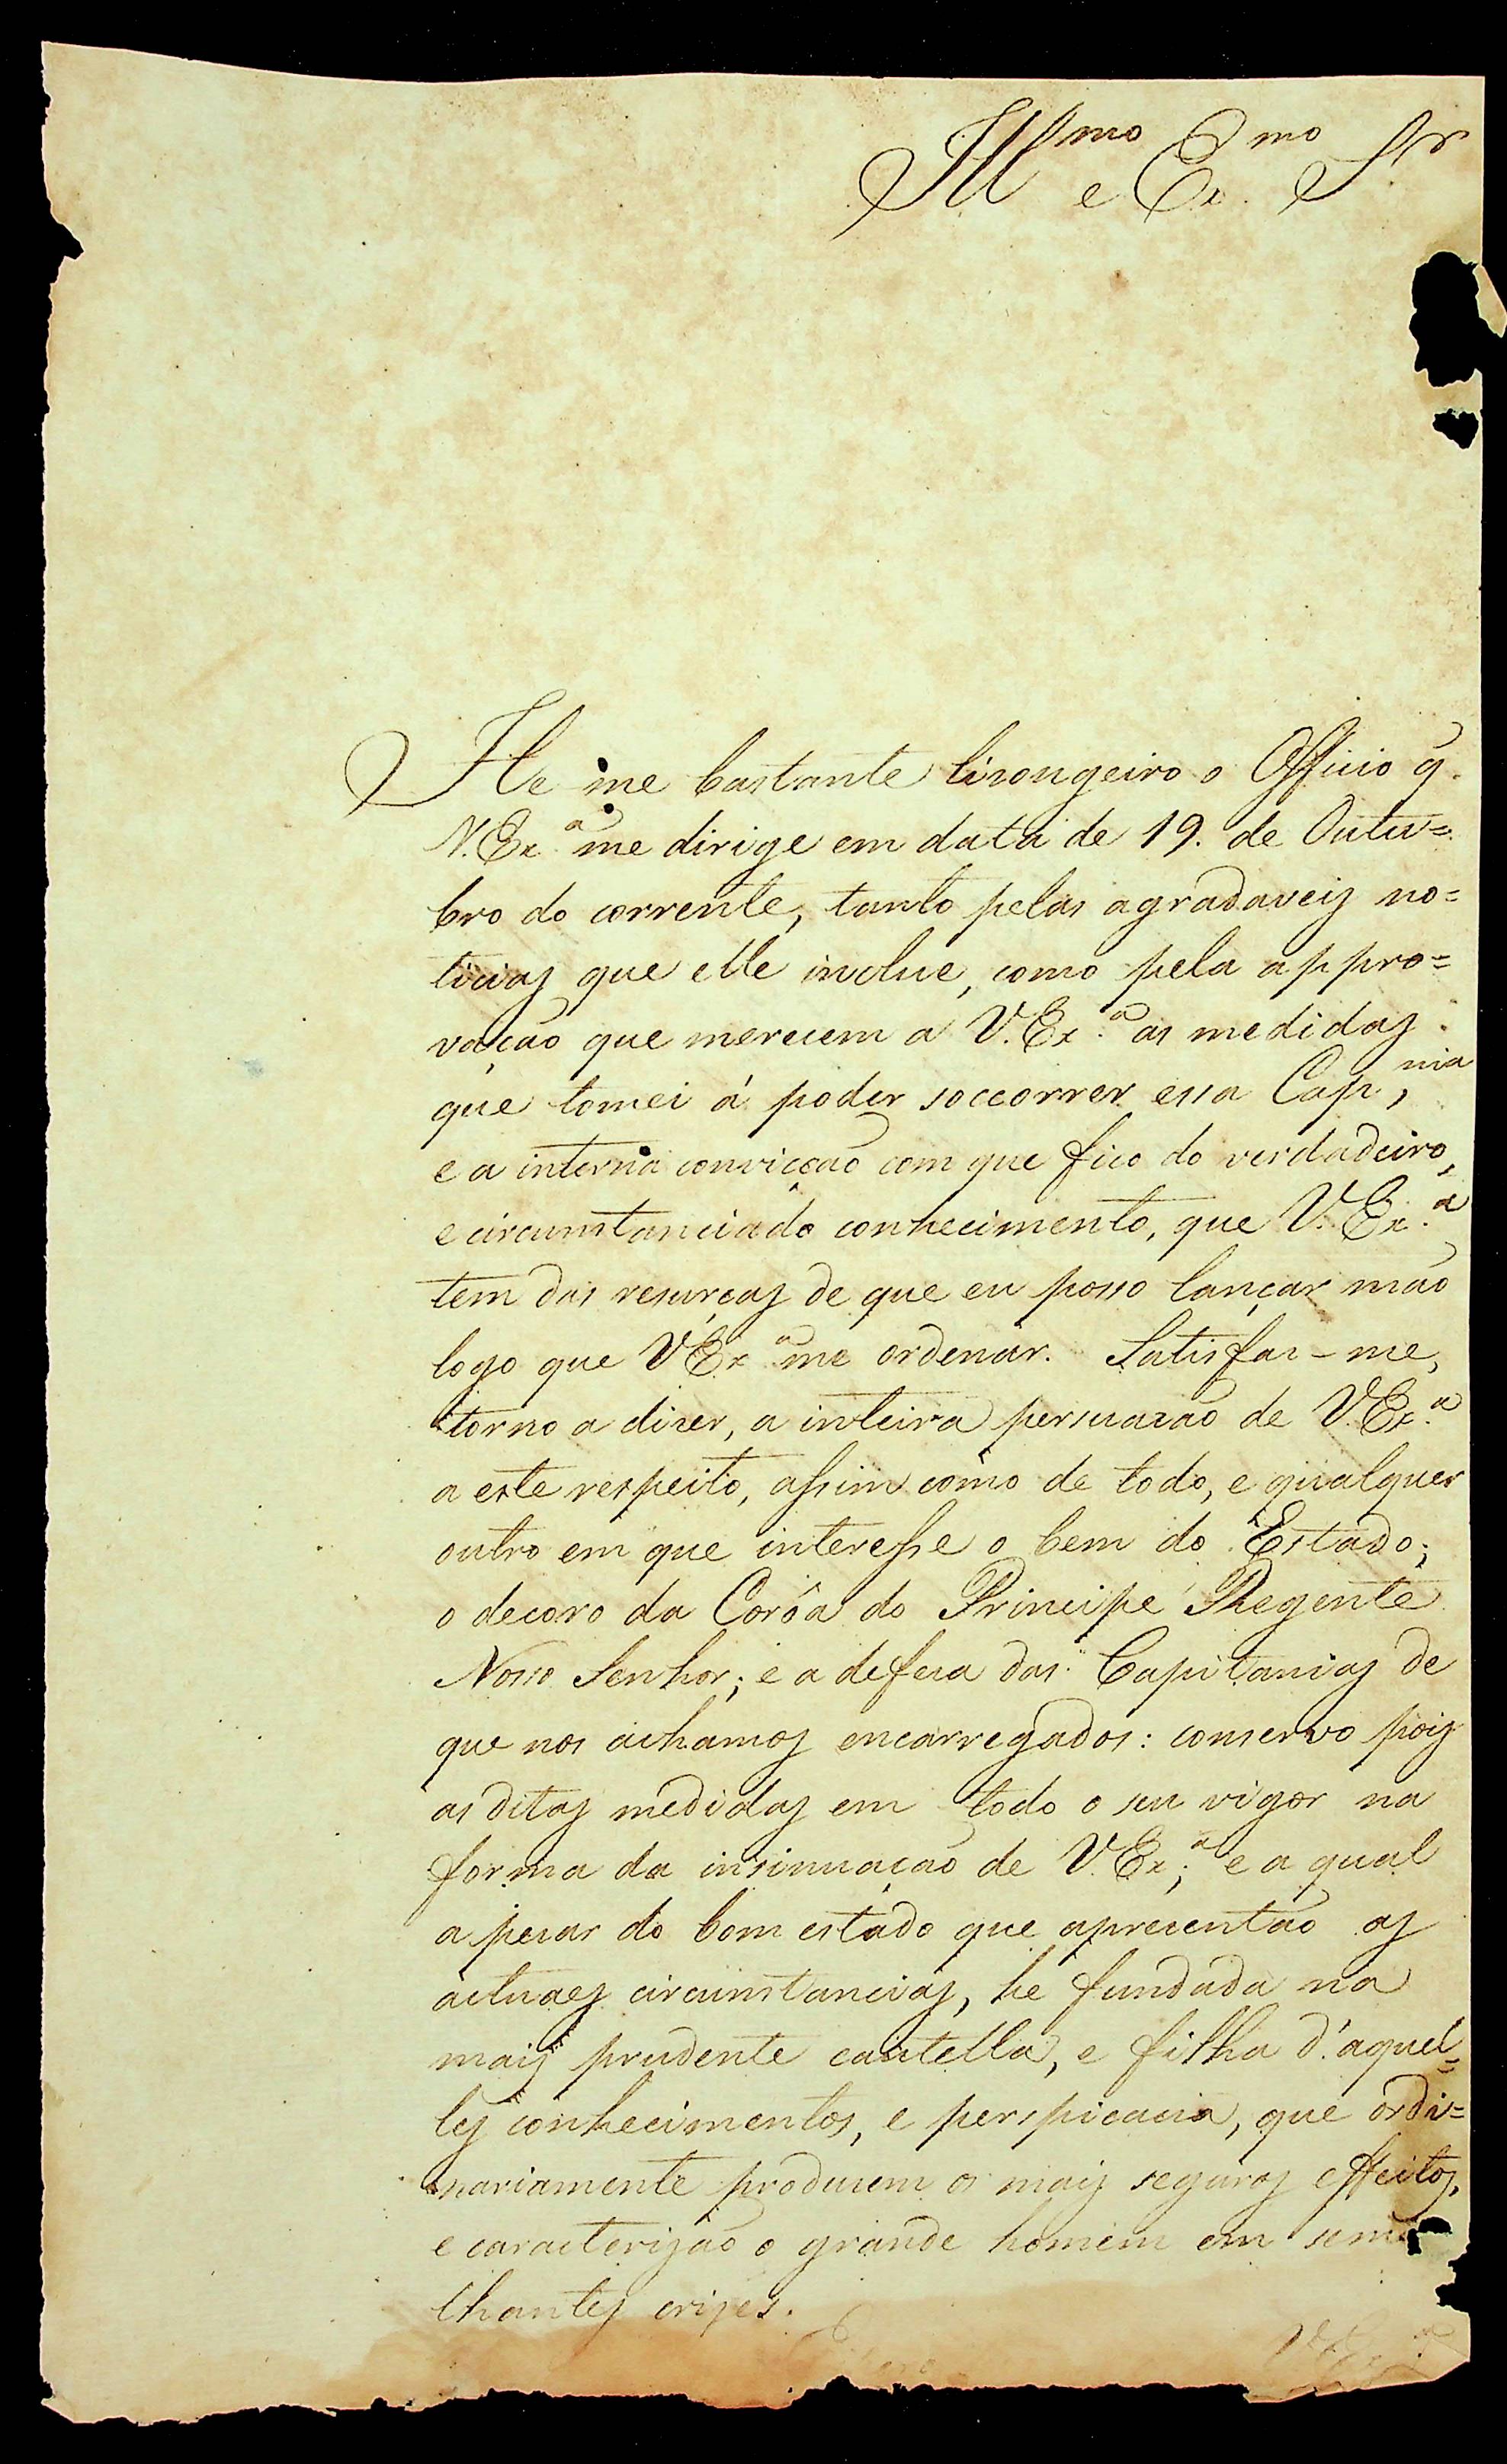 Ill.mo e Ex.mo S.r
He me bastante lisongeiro o Officio q̃.
V. Ex.a me dirige em data de 19. de Outu=
bro do corrente, tanto pelas agradaveis no=
ticias que elle inclue, como pela appro=
vação que merecem a V. Ex.a as medidas
que tomei á poder soccorrer essa Cap.nia,
e a interna convicção com que fico do verdadeiro,
e circumstanciado conhecimento, que V. Ex.a
tem das resurças de que eu posso lançar mão
logo que V Ex.a me ordenar. Satisfaz-me,
torno a dizer, a inteira persuazão de V. Ex.a
a este respeito, assim como de todo, e qualquer
outro em que interesse o bem do Estado;
o decoro da Corôa do Principe Regente
Nosso Senhor; e a defeza das Capitanias de
que nos achamos encarregados: conservo pois
as ditas medidas em todo o seu vigor na
forma da insinuação de V. Ex.a; e a qual
a pezar do bom estado que aprezentão as
actuaes circumstancias, he fundada na
mais prudente cautella, e filha d'aquel=
les conhecimentos, e perspicacia, que ordi=
nariamente produzem os mais seguros effeitos,
e caracterizão o grande homem em seme
lhantes crizes.
V. Ex.a